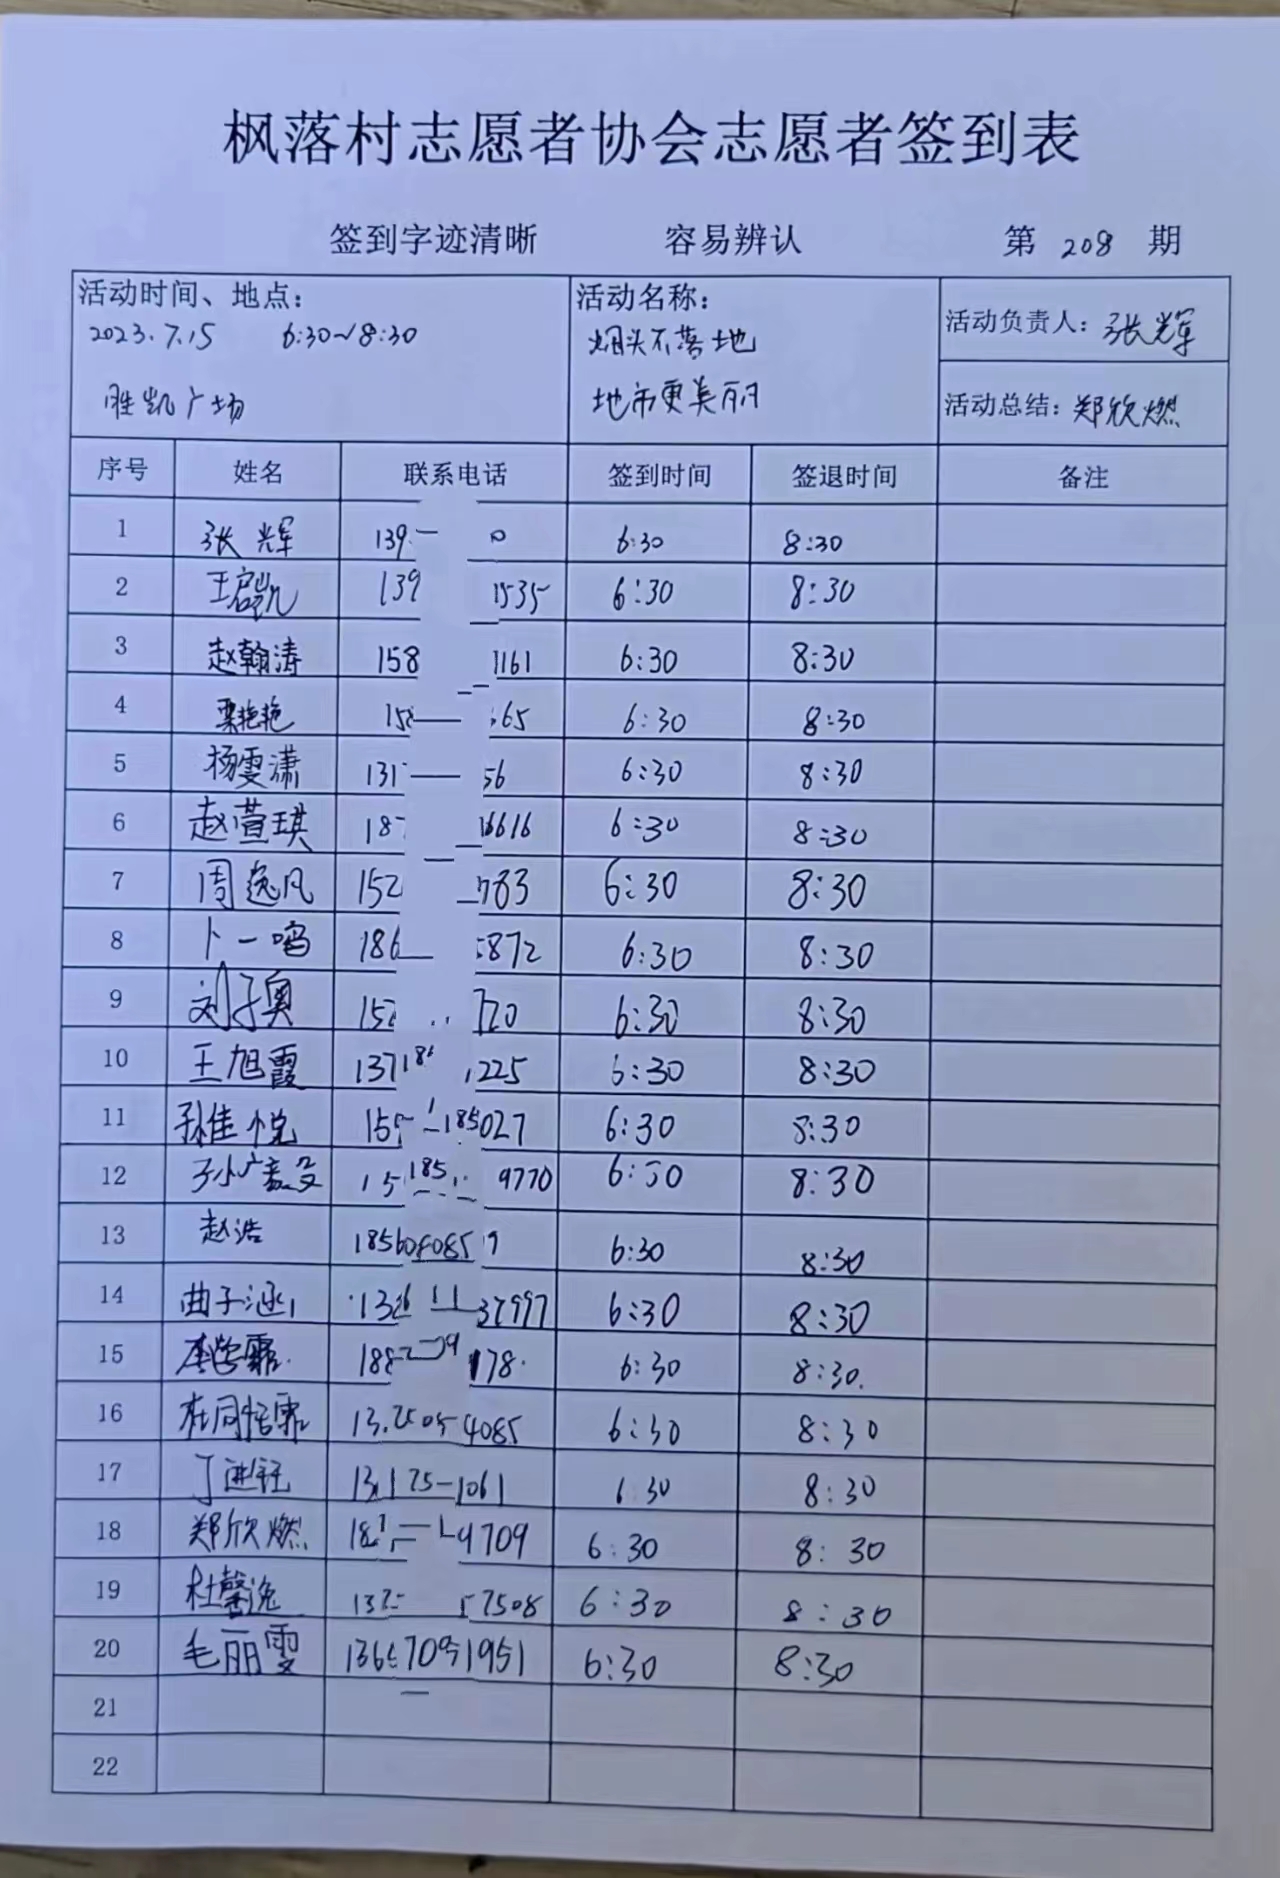 枫落村志愿者协会志愿者签到表
签到字迹清晰 容易辨认 第 208 期
活动时间、地点: 活动名称: 活动负责人: 张辉
2023.7.15 6:30~8:30 烟头不落地
胜凯广场 地市更美丽 活动总结: 郑欣燃
序号 姓名 联系电话 签到时间 签退时间 备注
1 张辉 139 0 6:30 8:30
2 王启凯 139 1535 6:30 8:30
3 赵翰涛 158 1161 6:30 8:30
4 栗艳艳 15 65 6:30 8:30
5 杨雯潇 131 56 6:30 8:30
6 赵萱琪 187 6616 6:30 8:30
7 周逸凡 152 783 6:30 8:30
8 卜一鸣 186 5872 6:30 8:30
9 刘子奥 152 720 6:30 8:30
10 王旭霞 137 225 6:30 8:30
11 孙佳悦 155 027 6:30 8:30
12 15 9770 6:30 8:30
13 赵浩 6:30 8:30
14 曲子涵 7997 6:30 8:30
15 188 178 6:30 8:30
16 4085 6:30 8:30
17 丁进钰 1061 6:30 8:30
18 郑欣燃 9709 6:30 8:30
19 杜馨逸 7508 6:30 8:30
20 毛丽雯 1951 6:30 8:30
21
22